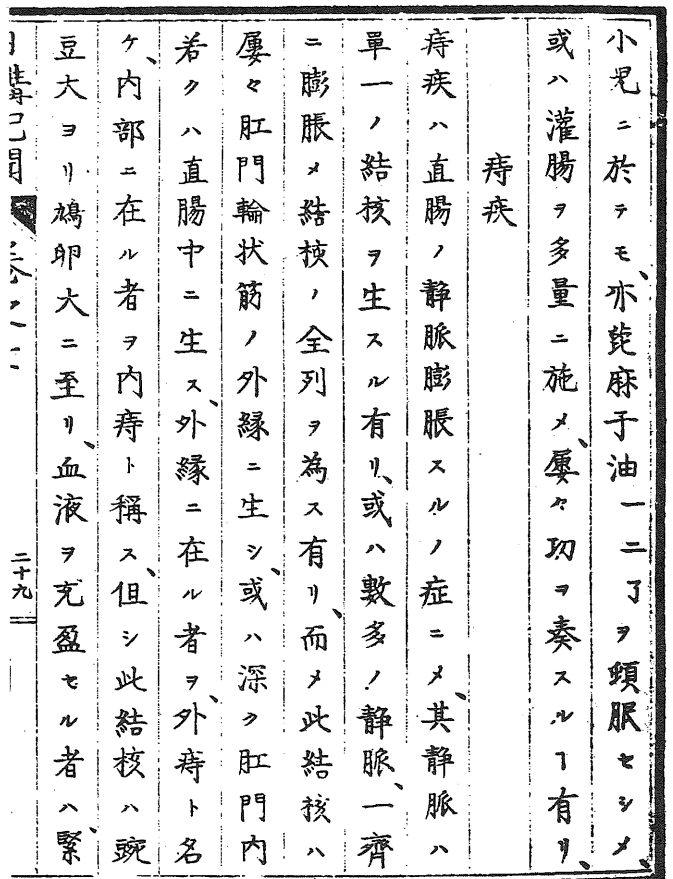 小児ニ於テモ、亦蓖麻子油一二了ヲ頓服セシメ、
或ハ灌腸ヲ多量ニ施メ、屢々功ヲ奏スルヿ有リ、
痔疾
痔疾ハ直腸ノ静脈膨脹スルノ症ニメ、其静脈ハ
單一ノ結核ヲ生スル有リ、或ハ數多ノ静脈、一齊
ニ膨脹メ結核ノ全列ヲ為ス有リ、而メ此結核ハ
屢々肛門輪状筋ノ外縁ニ生シ、或ハ深ク肛門内
若クハ直腸中ニ生ス、外縁ニ在ル者ヲ、外痔ト名
ケ、内部ニ在ル者ヲ内痔ト稱ス、但シ此結核ハ豌
豆大ヨリ鳩卵大ニ至リ、血液ヲ充盈セル者ハ、緊
日講記聞 卷之
二十九